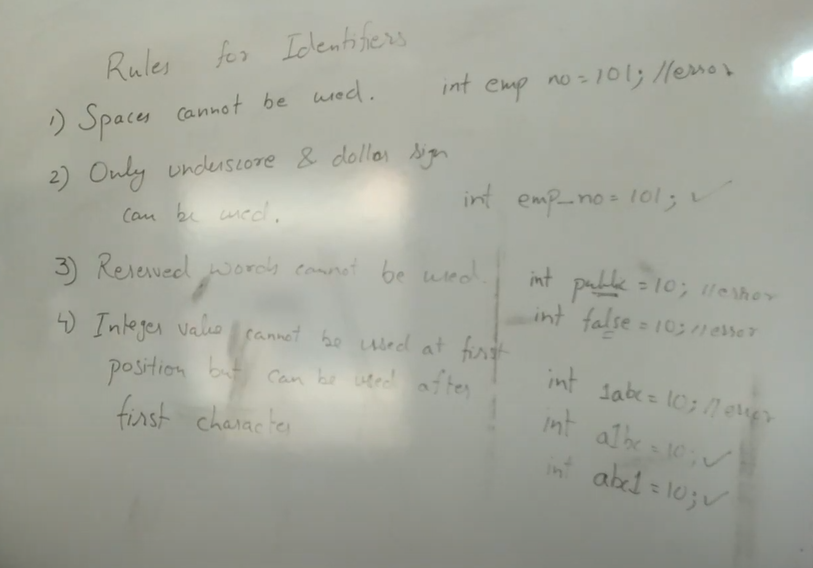 Rules for Identifiers
1) Spaces cannot be used. int emp no = 101; //error
2) Only underscore & dollar sign
can be used. int emp_no = 101; ✓
3) Reserved words cannot be used. int public = 10; //error
int false = 10; //error
4) Integer value cannot be used at first
position but can be used after
first character
int 1abc = 10; //error
int a1bc = 10; ✓
int abc1 = 10; ✓